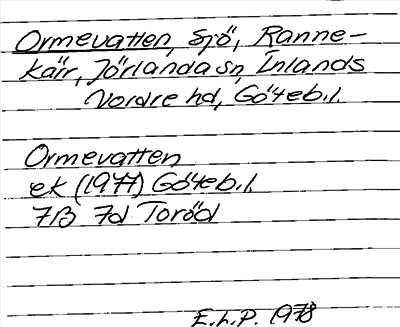 Ormevatten, sjö, Ranne-
kärr, Jörlanda sn, Inlands
Nordre hd, Göteb.l.
Ormevatten
ek (1977) Göteb.l.
7B 7d Toröd
E.L.P. 1978